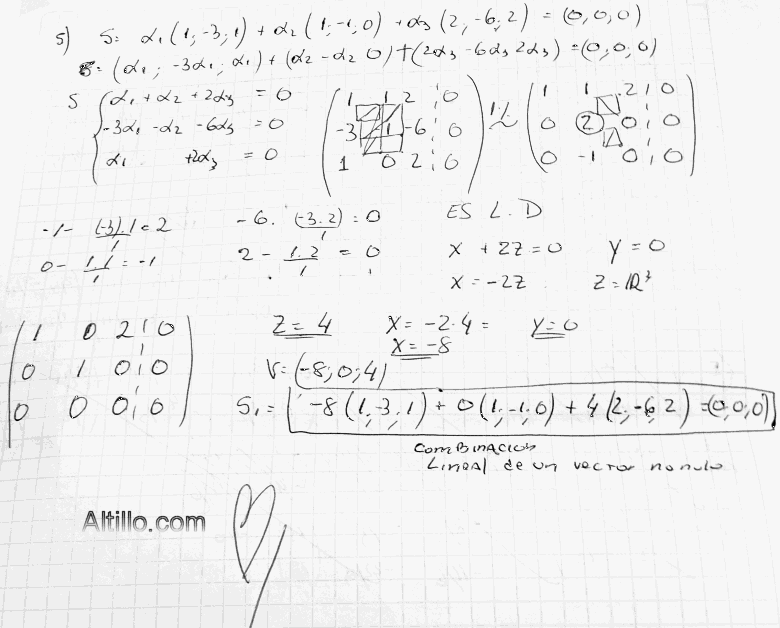 5) S: α₁(1,-3,1) + α₂(1,-1,0) + α₃(2,-6,2) = (0,0,0)
S: (α₁; -3α₁; α₁) + (α₂ -α₂ 0) + (2α₃ -6α₃ 2α₃) = (0,0,0)
S { α₁ + α₂ + 2α₃ = 0
-3α₁ -α₂ -6α₃ = 0
α₁ +2α₃ = 0
( 1 1 2 ¦ 0
-3 -1 -6 ¦ 0
1 0 2 ¦ 0 )
( 1 1 2 ¦ 0
0 2 0 ¦ 0
0 -1 0 ¦ 0 )
-1- (-3).1/1 = 2
0 - 1.1/1 = -1
-6. (-3.2)/1 = 0
2 - 1.2/1 = 0
ES L.D
X + 2Z = 0 Y = 0
X = -2Z Z = ℝ³
( 1 0 2 ¦ 0
0 1 0 ¦ 0
0 0 0 ¦ 0 )
Z = 4 X = -2·4 = Y = 0
X = -8
V = (-8; 0; 4)
S₁ = -8(1,-3,1) + 0(1,-1,0) + 4(2,-6,2) = (0,0,0)
COMBINACION
LINEAL de un vector no nulo
Altillo.com